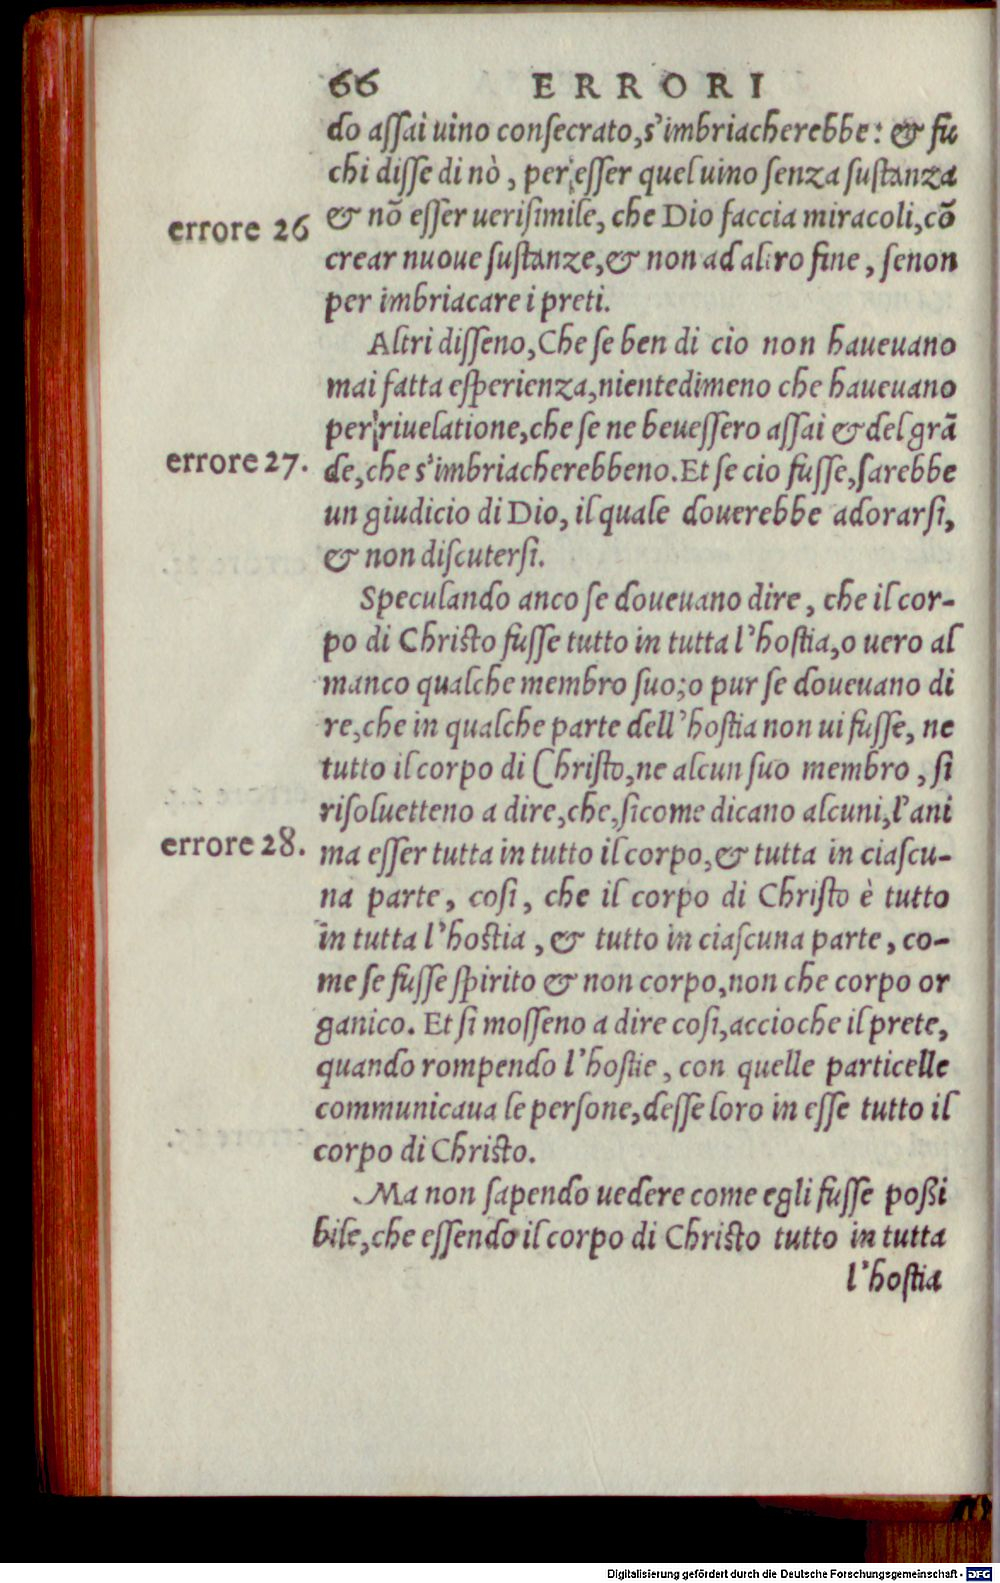 66 ERRORI
do assai uino consecrato, s'imbriacherebbe: & fu
chi disse di nò, per esser quel uino senza sustanza
errore 26 & nõ esser uerisimile, che Dio faccia miracoli, cõ
crear nuoue sustanze, & non ad altro fine, senon
per imbriacare i preti.
Altri disseno, Che se ben di cio non haueuano
mai fatta esperienza, nientedimeno che haueuano
per riuelatione, che se ne beuessero assai & del grã
errore 27. de, che s'imbriacherebbeno. Et se cio fusse, sarebbe
un giudicio di Dio, il quale douerebbe adorarsi,
& non discutersi.
Speculando anco se doueuano dire, che il cor-
po di Christo fusse tutto in tutta l'hostia, o uero al
manco qualche membro suo; o pur se doueuano di
re, che in qualche parte dell'hostia non ui fusse, ne
tutto il corpo di Christo, ne alcun suo membro, si
risoluetteno a dire, che, sicome dicano alcuni, l'ani
errore 28. ma esser tutta in tutto il corpo, & tutta in ciascu-
na parte, cosi, che il corpo di Christo è tutto
in tutta l'hostia, & tutto in ciascuna parte, co-
me se fusse spirito & non corpo, non che corpo or
ganico. Et si mosseno a dire cosi, accioche il prete,
quando rompendo l'hostie, con quelle particelle
communicaua le persone, desse loro in esse tutto il
corpo di Christo.
Ma non sapendo uedere come egli fusse poßi
bile, che essendo il corpo di Christo tutto in tutta
l'hostia
Digitalisierung gefördert durch die Deutsche Forschungsgemeinschaft - DFG